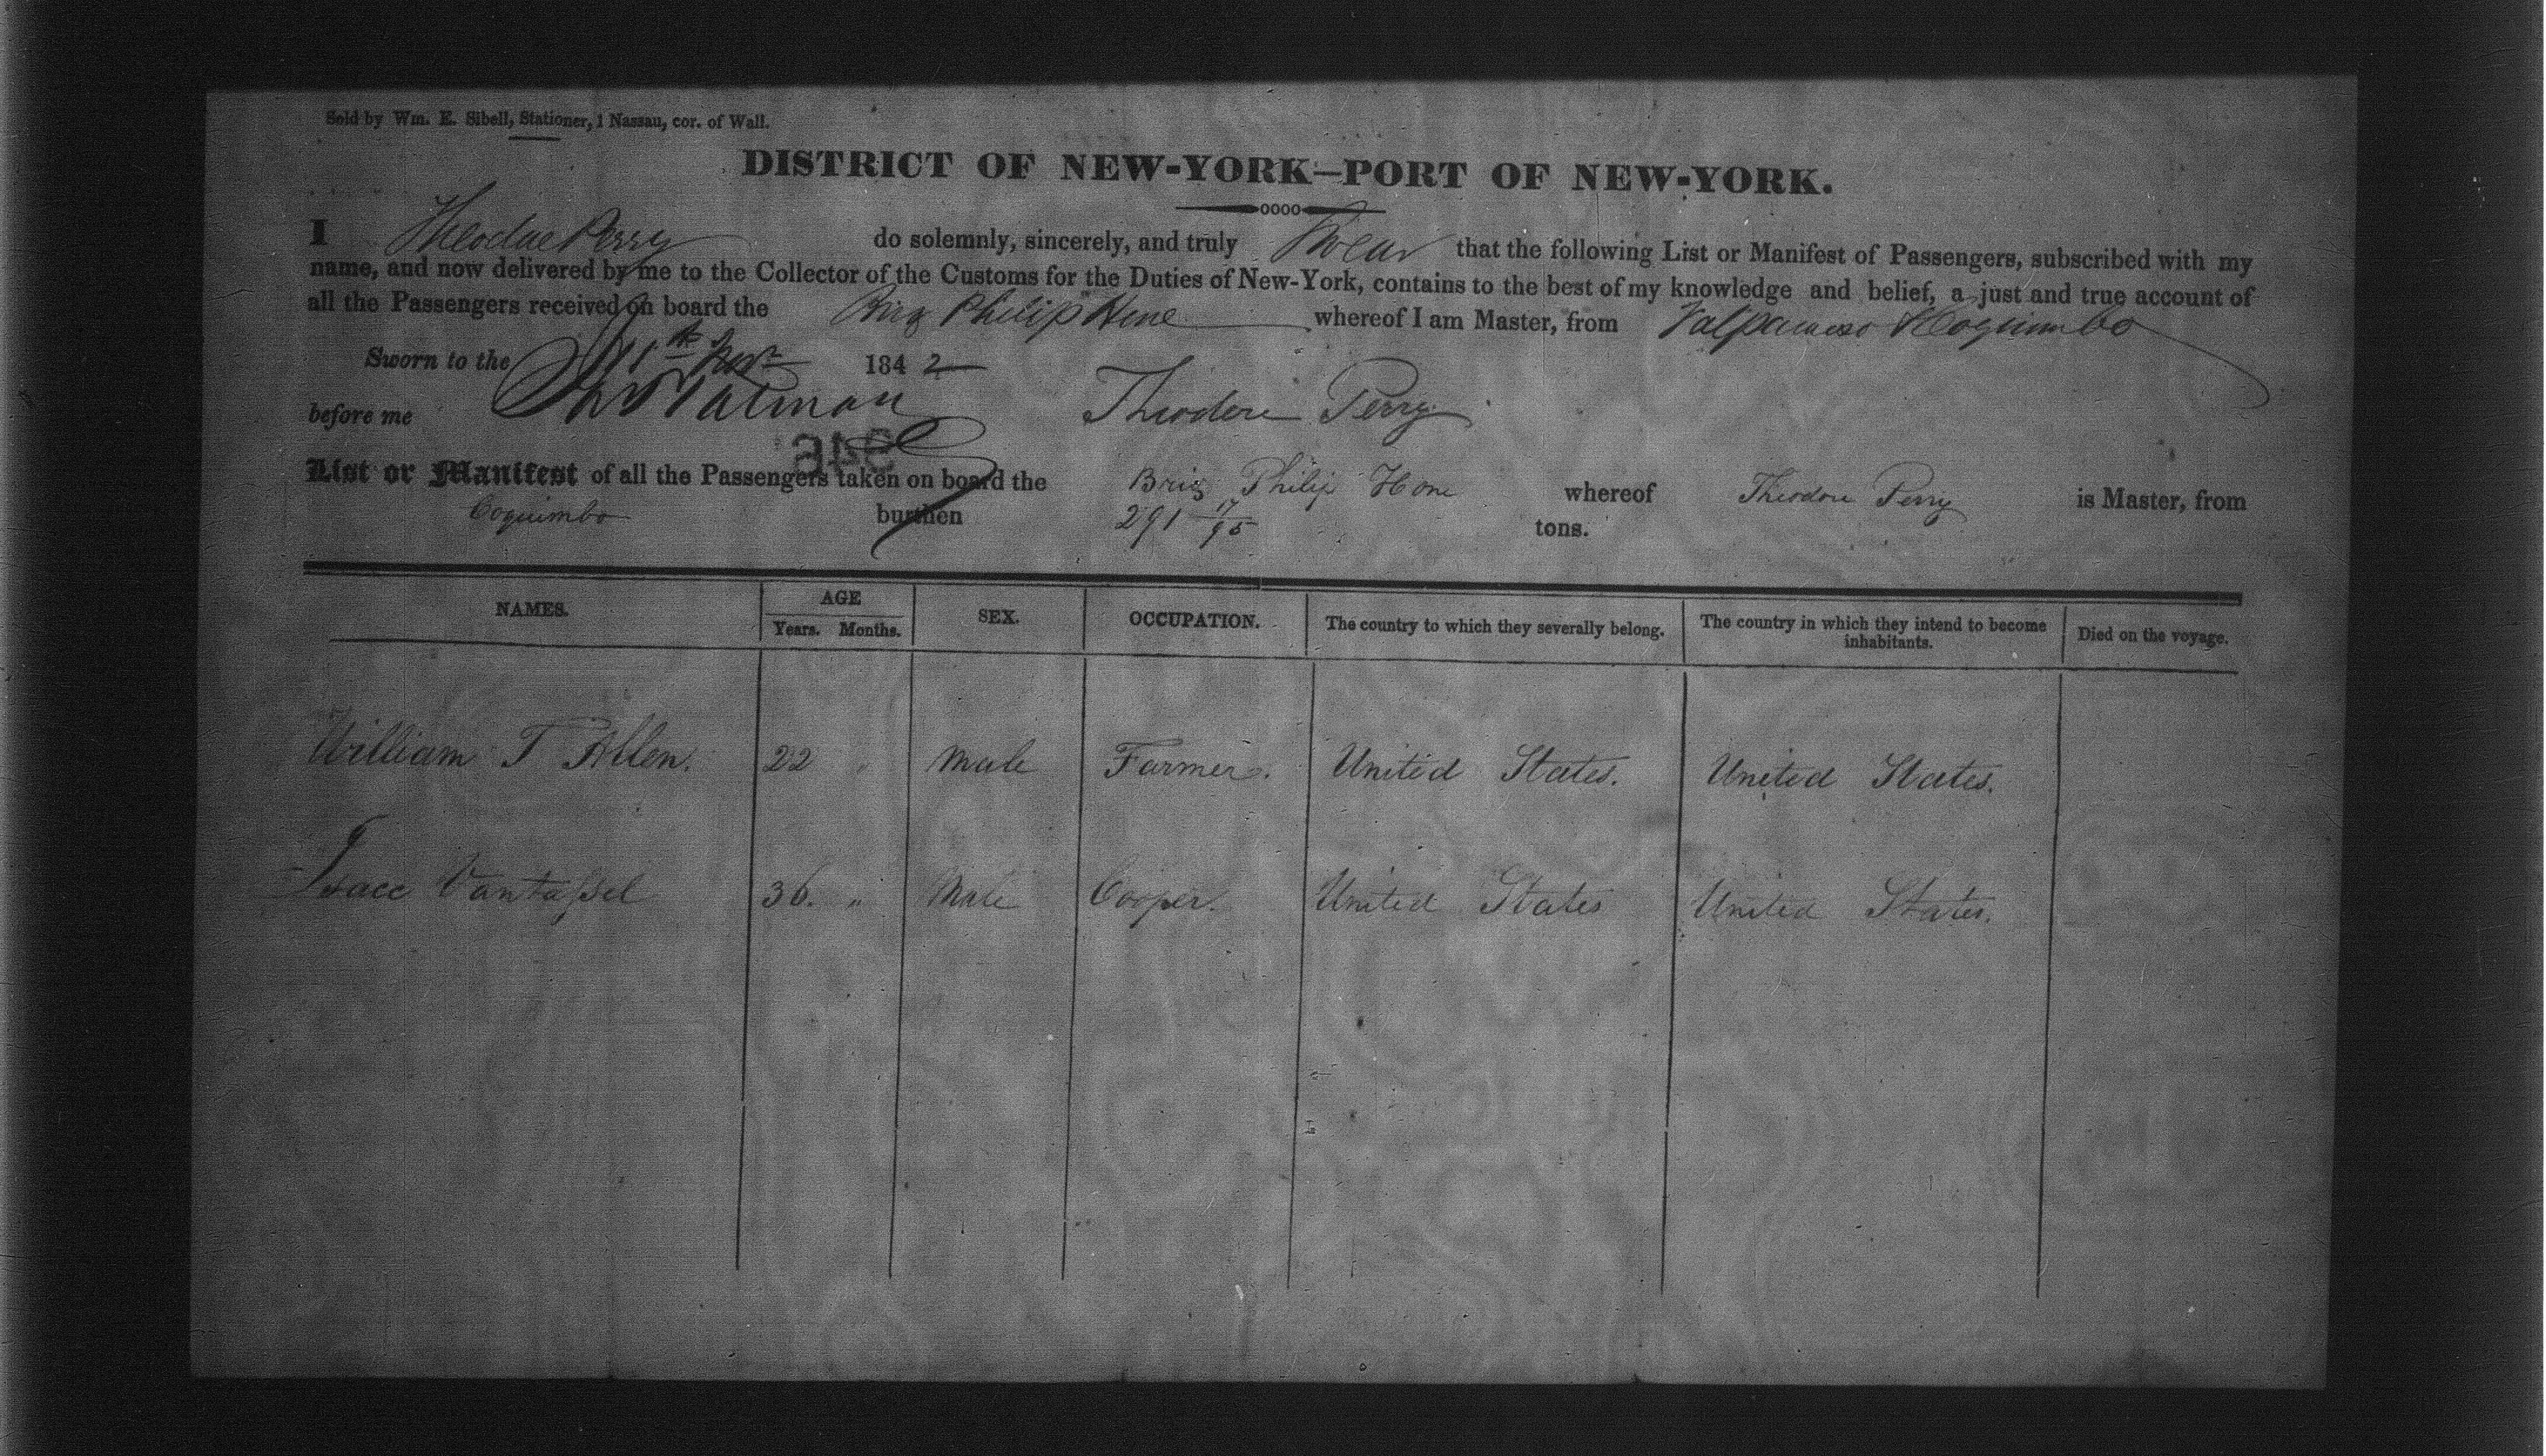 Sold by Wm. E. Sibell, Stationer, 1 Nassau, cor. of Wall.
DISTRICT OF NEW-YORK—PORT OF NEW-YORK.
I Theodore Perry do solemnly, sincerely, and truly Swear that the following List or Manifest of Passengers, subscribed with my
name, and now delivered by me to the Collector of the Customs for the Duties of New-York, contains to the best of my knowledge and belief, a just and true account of
all the Passengers received on board the Brig Philip Hone whereof I am Master, from Valparaiso & Coquimbo
Sworn to the 1842
before me Theodore Perry
List or Manifest of all the Passengers taken on board the Brig Philip Hone whereof Theodore Perry is Master, from
Coquimbo burthen 291 17/95 tons.
NAMES. AGE SEX. OCCUPATION. The country to which they severally belong. The country in which they intend to become inhabitants. Died on the voyage.
Years. Months.
William T Allen. 22 " Male Farmer. United States. United States.
Isacc Vantassel 36. " Male Cooper. United States United States.